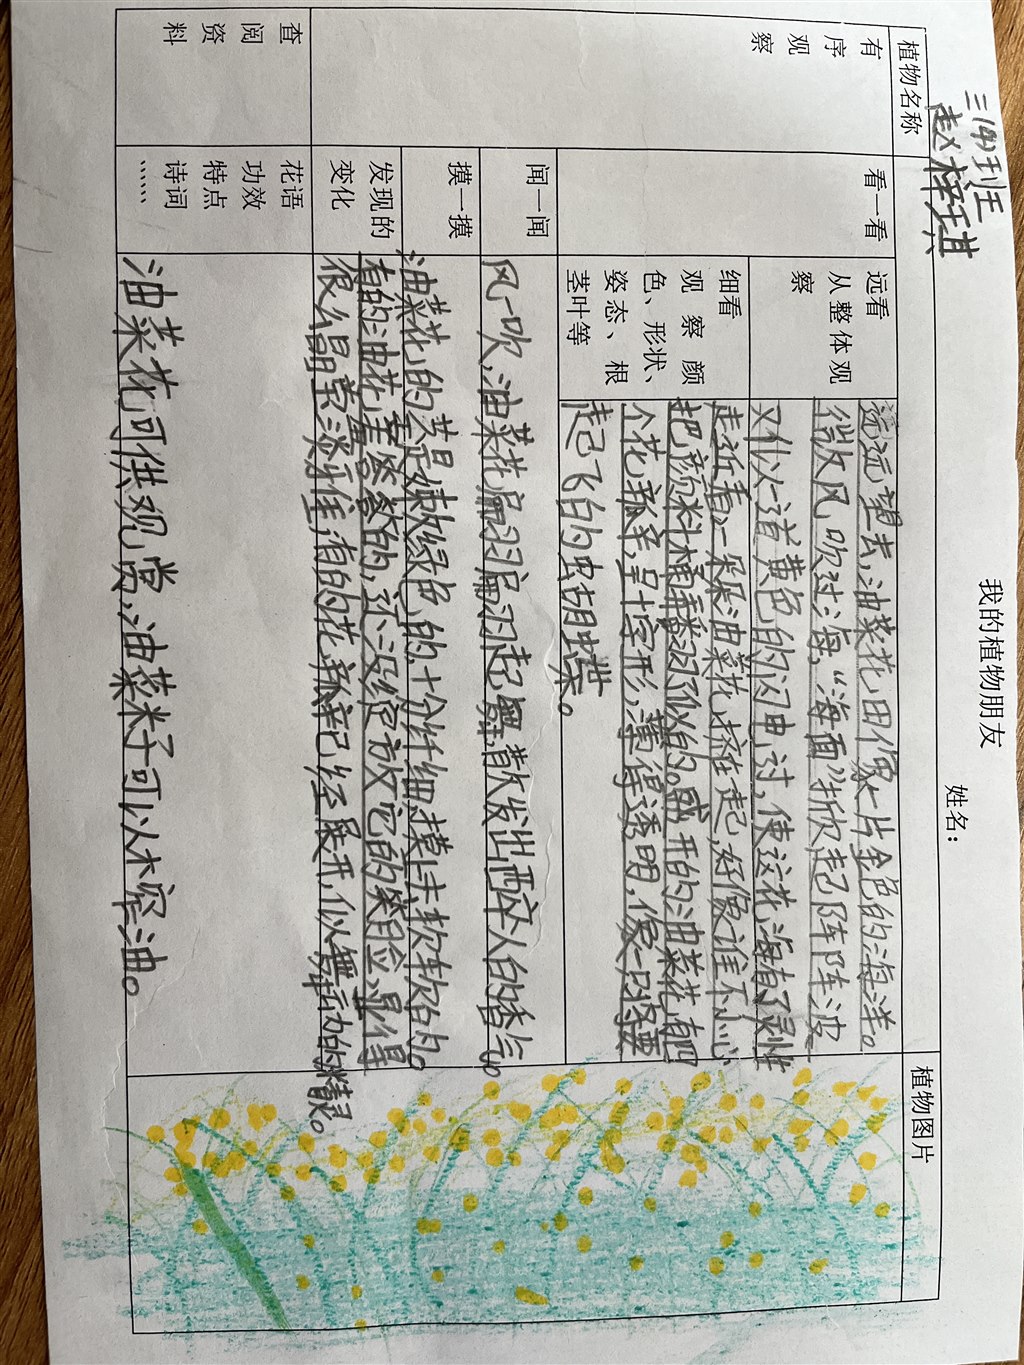 我的植物朋友
三(4)班
赵梓琪
姓名：
植物名称
植物图片
有序观察
看一看
远看
从整体观察
远远望去，油菜花田像一片金色的海洋。
微风吹过海，“海面”掀起阵阵波
又似一道黄色的闪电，讨，使这花海有了灵性
细看
观察颜色、形状、姿态、根茎叶等
走近看，一朵朵油菜花挤在一起，好像谁不小心
把颜料桶番羽似的。盛开的油菜花，有四
个花瓣，呈十字形，薄得透明，像一只将要
起飞的的蝴蝶。
闻一闻
风一吹，油菜花扇扇起舞，散发出醉人的香气。
摸一摸
油菜花的茎是嫩绿色的，十分纤细，摸上去软软的。
发现的变化
有的油花羞答答的，还没绽放它的笑脸，显得
很么晶莹漆雅，有的花瓣已经展开，似舞动的精灵。
查阅资料
花语
功效
特点
诗词
……
油菜花可供观赏，油菜籽可以榨油。